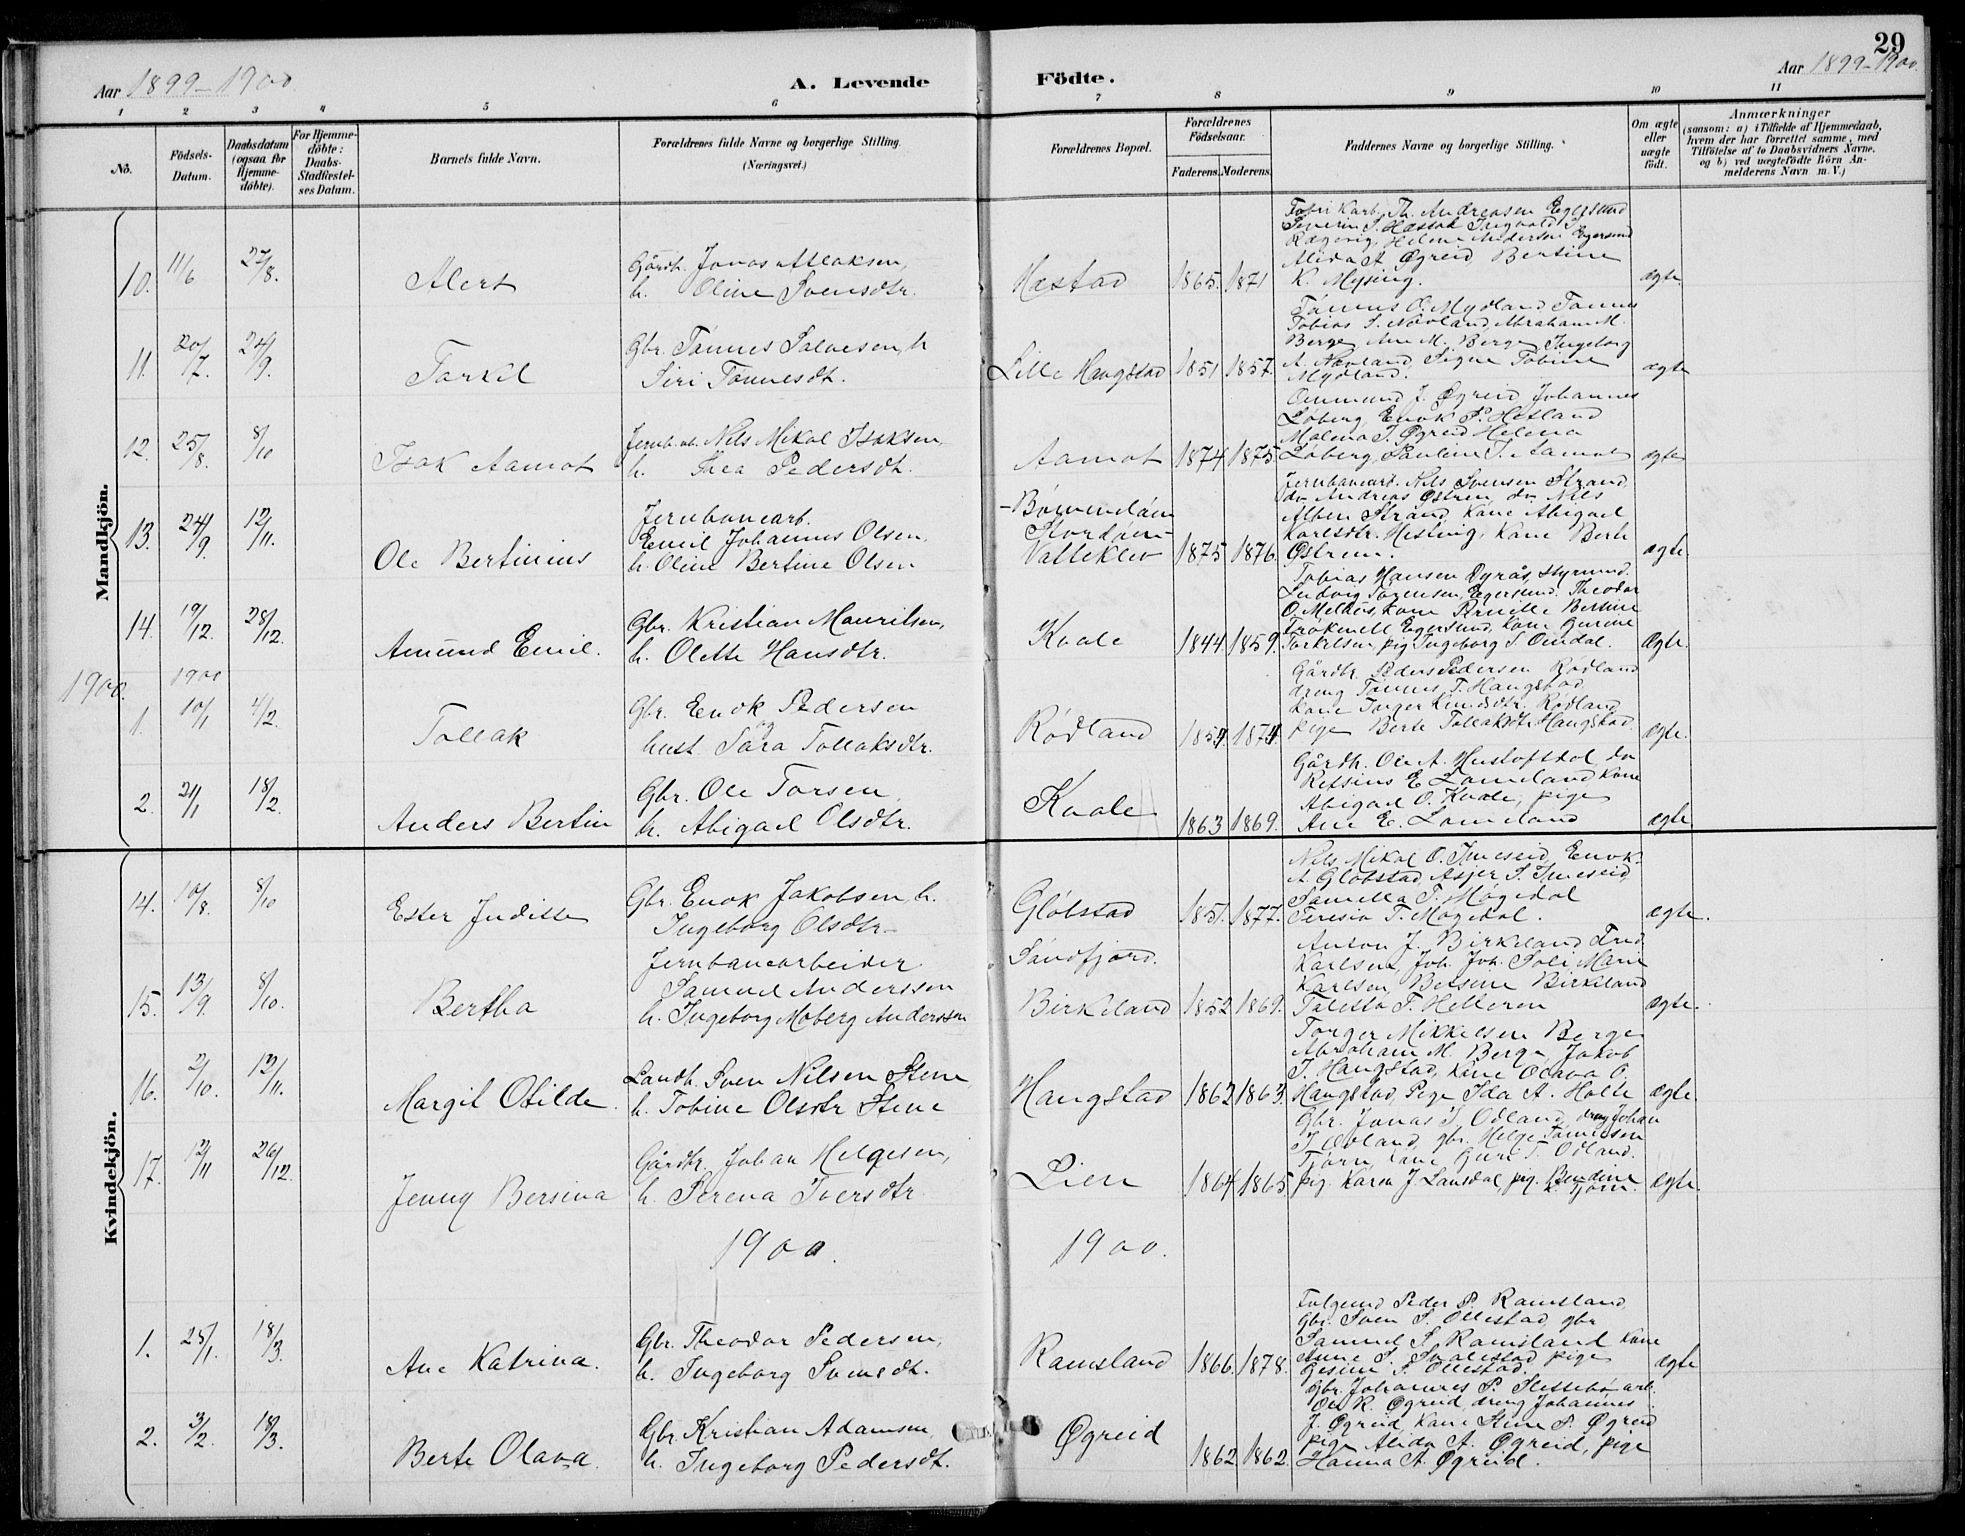 29
Aar 1899-1900.
A. Levende Födte.
Aar 1899-1900.
1 2 3 4 5 6 7 8 9 10 11
No.
Födsels-Datum.
Daabsdatum (ogsaa for Hjemmedöbte).
For Hjemmedöbte: Daabs-Stadfæstelses Datum.
Barnets fulde Navn.
Forældrenes fulde Navne og borgerlige Stilling.
(Næringsvei.)
Forældrenes Bopæl.
Forældrenes Födselsaar.
Faderens. Moderens.
Faddernes Navne og borgerlige Stilling.
Om ægte eller uægte födt.
Anmærkninger
(saasom: a) i Tilfælde af Hjemmedaab, hvem der har forrettet samme, med Tilföielse af to Daabsvidners Navne, og b) ved uægtefödte Börn Anmelderens Navn m. V.)
Mandkjön.
10. 11/6 27/8. Alert
Gårdb. Jonas Aslaksen,
h. Oline Svensdtr.
Hæstad 1865. 1871
Th. Andreasen Egersund
Alida A. Øgreid, Bertine
K. Mysing.
ægte.
11. 20/7. 24/9. Torkel
Gbr. Tønnes Salvesen, h
Siri Tønnesdt.
Lille Haugstad 1851 1857.
Tönnes O. Mydland Tönnes
Tobias S. Nævland, Abraham M.
Berge, Ane M. Berge, Ingeborg
A. Nævland, Signe Tobine
Mydland.
ægte
12. 25/8. 8/10 Isak Aamot
Jernb.arb. Nils Mikal Isaksen,
h. Thea Pedersdt.
Aamot 1874 1875
Ommund J. Øgreid Johannes
Løberg, Enok P. Hetland
Malena J. Øgreid Helena
Løberg, Pauline I. Aamot
ægte
13. 24/9. 12/11. Ole Bertinius
Jernbanearb.
Emil Johannes Olsen,
h. Oline Bertine Olsen
Vatteklev 1875 1876.
Jernbanearb. Nils Svensen Strand,
do Andreas Østren, do Nils
Albert Strand, Kone Abigael
Karlsdtr. Hesting, Kone Berte
Østrem.
ægte.
14. 19/12. 28/12. Amund Emil.
Gbr. Kristian Mauritsen,
h. Olette Hansdtr.
Kvale 1844 1859.
Tobias Hansen Dyrås, Styrmand
Ludvig Sörensen, Egersund. Theodor
O. Melhus, Kone Pernelle Bertine
Egersund, Kone Gurine
Torkelsen, pig Ingeborg S. Omdal.
Ægte.
1900.
1900
1. 10/1 4/2. Tollak
Gbr. Enok Pedersen
og
hust. Sara Tollaksdtr.
Rødland 1854 1874.
Gårdbr. Peder Pedersen Rødland
dreng Tönnes T. Haugstad
Kone Torger Knudsdtr. Rødland
pige Berte Tollaksdt. Haugstad.
ægte.
2. 21/1 18/2. Anders Bertin
Gbr. Ole Torsen,
h. Abigael Olsdtr.
Kvale 1863 1869.
Gårdb. Ole A. Hustoftdal, do
E. Lomeland Kone
Abigael O. Kvale, pige
Ane E. Lomeland
ægte
Kvindekjön.
14. 10/8. 8/10 Ester Juditte
Gbr. Enok Jakobsen h.
Ingeborg Olsdtr.
Gløbstad 1851. 1877.
Nils Mikal O. Imeseid, Enok
A. Gløbstad, Asjer S. Imeseid,
Samella T. Møgedal
Teresia T. Møgedal.
ægte.
15. 13/9. 8/10. Bertha
Jernbanearbeider
Samuel Anderssen
h. Ingeborg Moberg Anderssen
Søndfjord.
Birkeland 1852 1869.
Anton J. Birkeland, Fred.
Karlsen, Joh. Joh. Soli, Marie
Karlsen, Betsine Birkeland
Taletta T. Helleren
ægte.
16. 2/10. 12/11. Margit Otilde.
Landh. Sven Nilsen Stene,
h. Tobine Olsdtr Stene
Haugstad 1862 1863.
Torger Mikkelsen Berge
Abraham M. Berge, Jakob
T. Haugstad, Kone Olava O.
Haugstad, Pige Ida A. Holte
Ægte.
17. 12/11 26/12. Jenny Bersina
Gårdbr. Johan Helgesen,
h. Serena Iversdtr.
Lien 1864 1865.
Gbr. Jonas T. Odland, dreng Johan
T. Odland, gbr. Helge Tønnesen
Tjørn, Kone Guri T. Odland.
pig. Karen J. Lansdal, pig. Bendine
K. Tjørn.
Ægte.
1900. 1900.
1. 25/1. 18/3. Ane Katrina.
Gbr. Theodor Pedersen,
h. Ingeborg Svensdt.
Ramsland 1866. 1878.
Peder P. Ramsland,
Gbr. Sven S. Ollestad, gbr
Samuel S. Ramsland Kone
Anne S. Svalestad pige
Gesine S. Ollestad.
Ægte
2. 3/2. 18/3. Berte Olava.
Gbr. Kristian Adamsen,
h. Ingeborg Pedersdt.
Øgreid 1862 1862
Gbr. Johannes P. Slettebø arb.
Ole K. Øgreid, dreng Johannes
J. Øgreid, Kone Stine P. Øgreid
pige Alida A. Øgreid, pige
Hanna A. Øgreid.